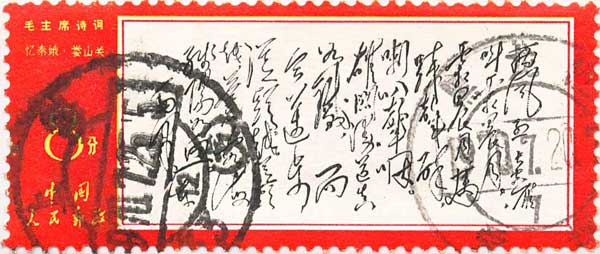 毛主席诗词
忆秦娥·娄山关
8分
中国
人民邮政
西风烈长空雁
叫霜晨月
霜晨月马
蹄声碎
喇叭声咽
雄关漫道真
如铁而
今迈步
从头越从头
越苍山如海
残阳如
血